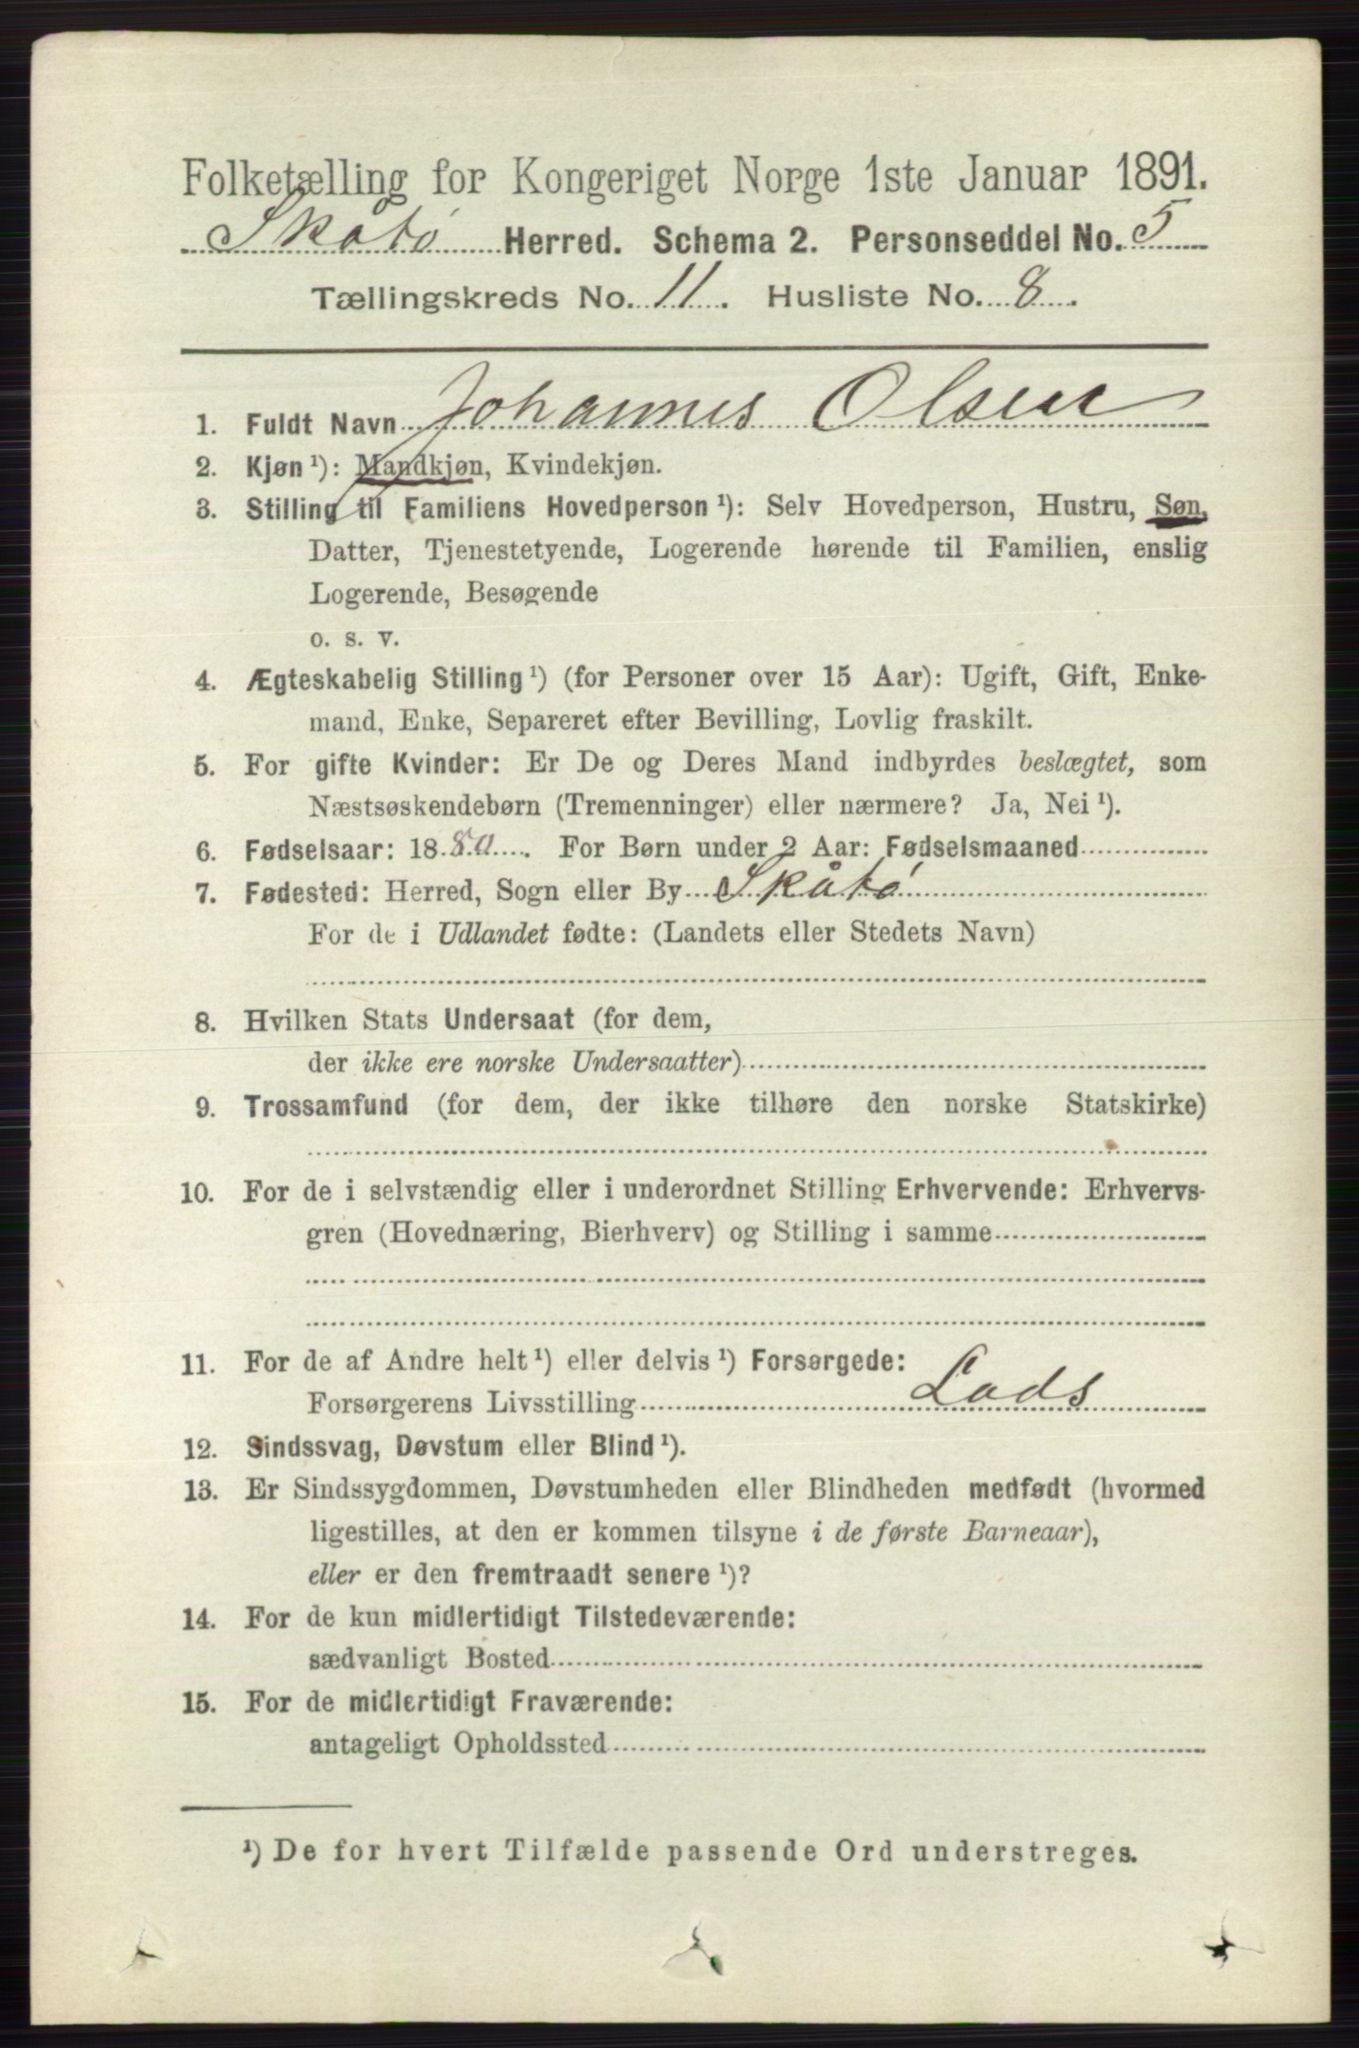 Folketælling for Kongeriget Norge 1ste Januar 1891.
Skåtø Herred. Schema 2. Personseddel No. 5
Tællingskreds No. 11. Husliste No. 8.
1. Fuldt Navn Johannes Olsen
2. Kjøn¹): Mandkjøn, Kvindekjøn.
3. Stilling til Familiens Hovedperson¹): Selv Hovedperson, Hustru, Søn,
Datter, Tjenestetyende, Logerende hørende til Familien, enslig
Logerende, Besøgende
o. s. v.
4. Ægteskabelig Stilling¹) (for Personer over 15 Aar): Ugift, Gift, Enke-
mand, Enke, Separeret efter Bevilling, Lovlig fraskilt.
5. For gifte Kvinder: Er De og Deres Mand indbyrdes beslægtet, som
Næstsøskendebørn (Tremenninger) eller nærmere? Ja, Nei¹).
6. Fødselsaar: 1880. For Børn under 2 Aar: Fødselsmaaned
7. Fødested: Herred, Sogn eller By Skåtø
For de i Udlandet fødte: (Landets eller Stedets Navn)
8. Hvilken Stats Undersaat (for dem,
der ikke ere norske Undersaatter)
9. Trossamfund (for dem, der ikke tilhøre den norske Statskirke)
10. For de i selvstændig eller i underordnet Stilling Erhvervende: Erhvervs-
gren (Hovednæring, Bierhverv) og Stilling i samme
11. For de af Andre helt¹) eller delvis¹) Forsørgede:
Forsørgerens Livsstilling Lods
12. Sindssvag, Døvstum eller Blind¹).
13. Er Sindssygdommen, Døvstumheden eller Blindheden medfødt (hvormed
ligestilles, at den er kommen tilsyne i de første Barneaar),
eller er den fremtraadt senere¹)?
14. For de kun midlertidigt Tilstedeværende:
sædvanligt Bosted
15. For de midlertidigt Fraværende:
antageligt Opholdssted
¹) De for hvert Tilfælde passende Ord understreges.